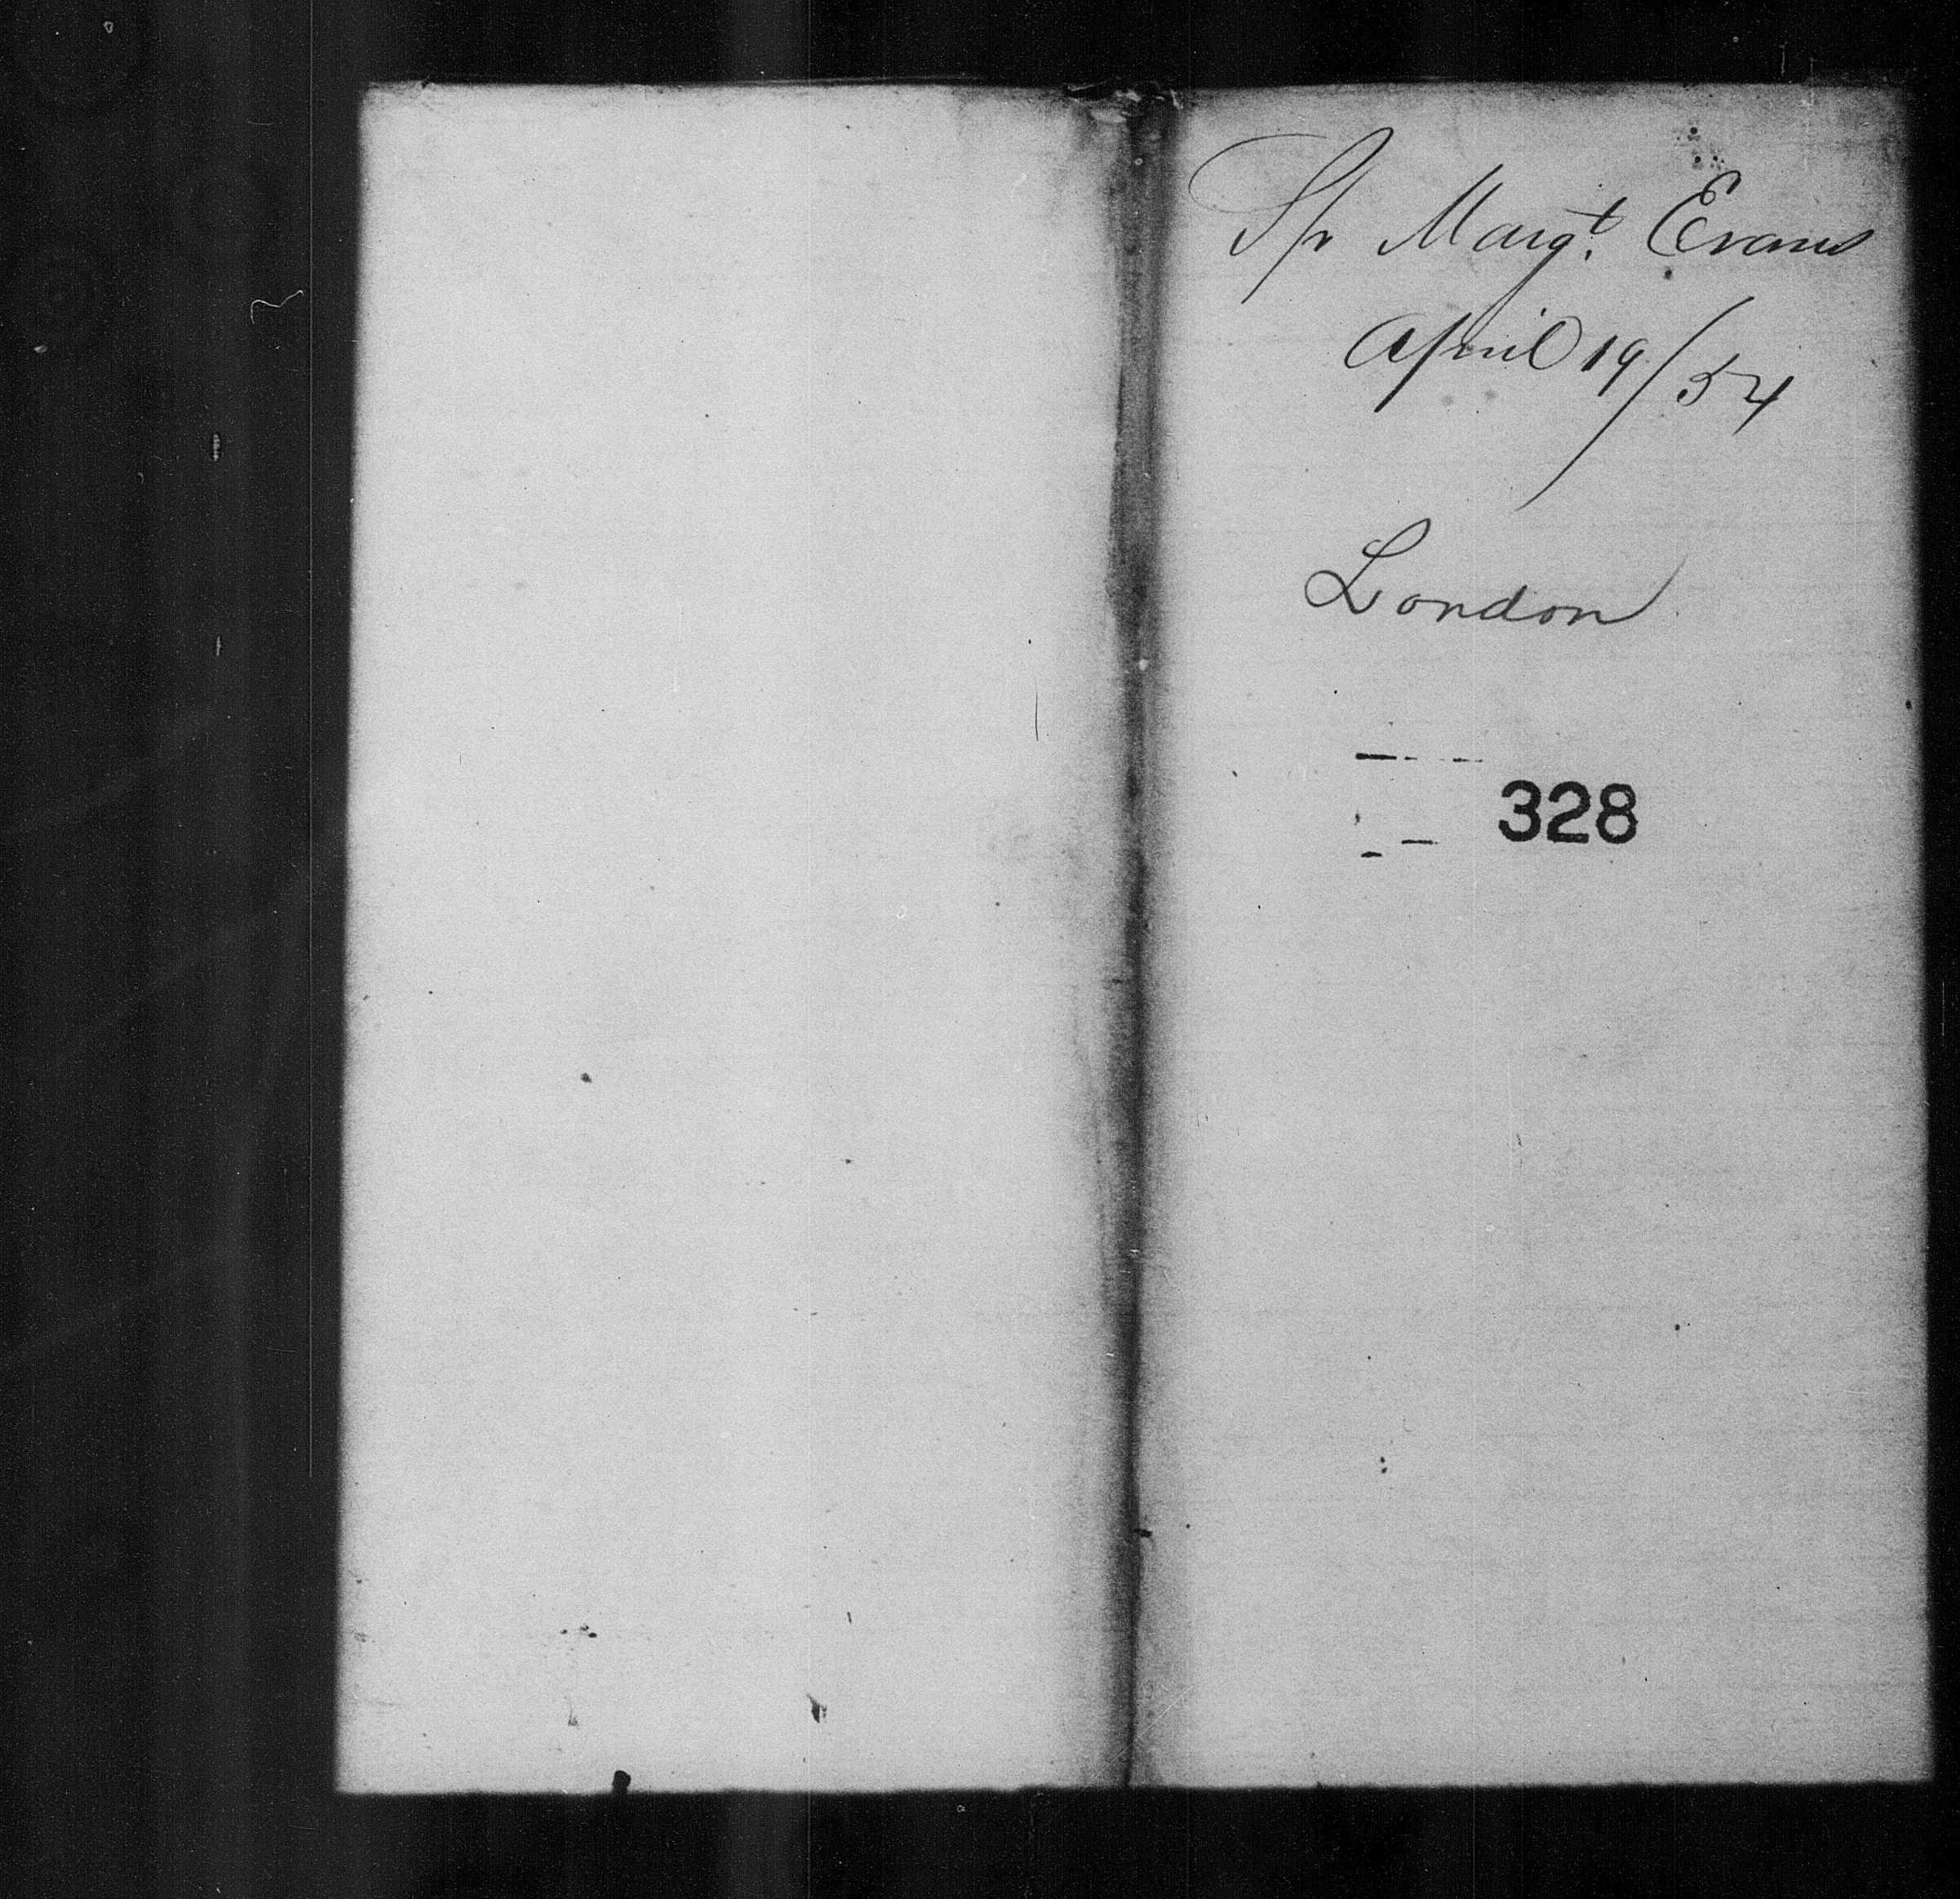 Sh Margt. Evans
April 19/54
London
328